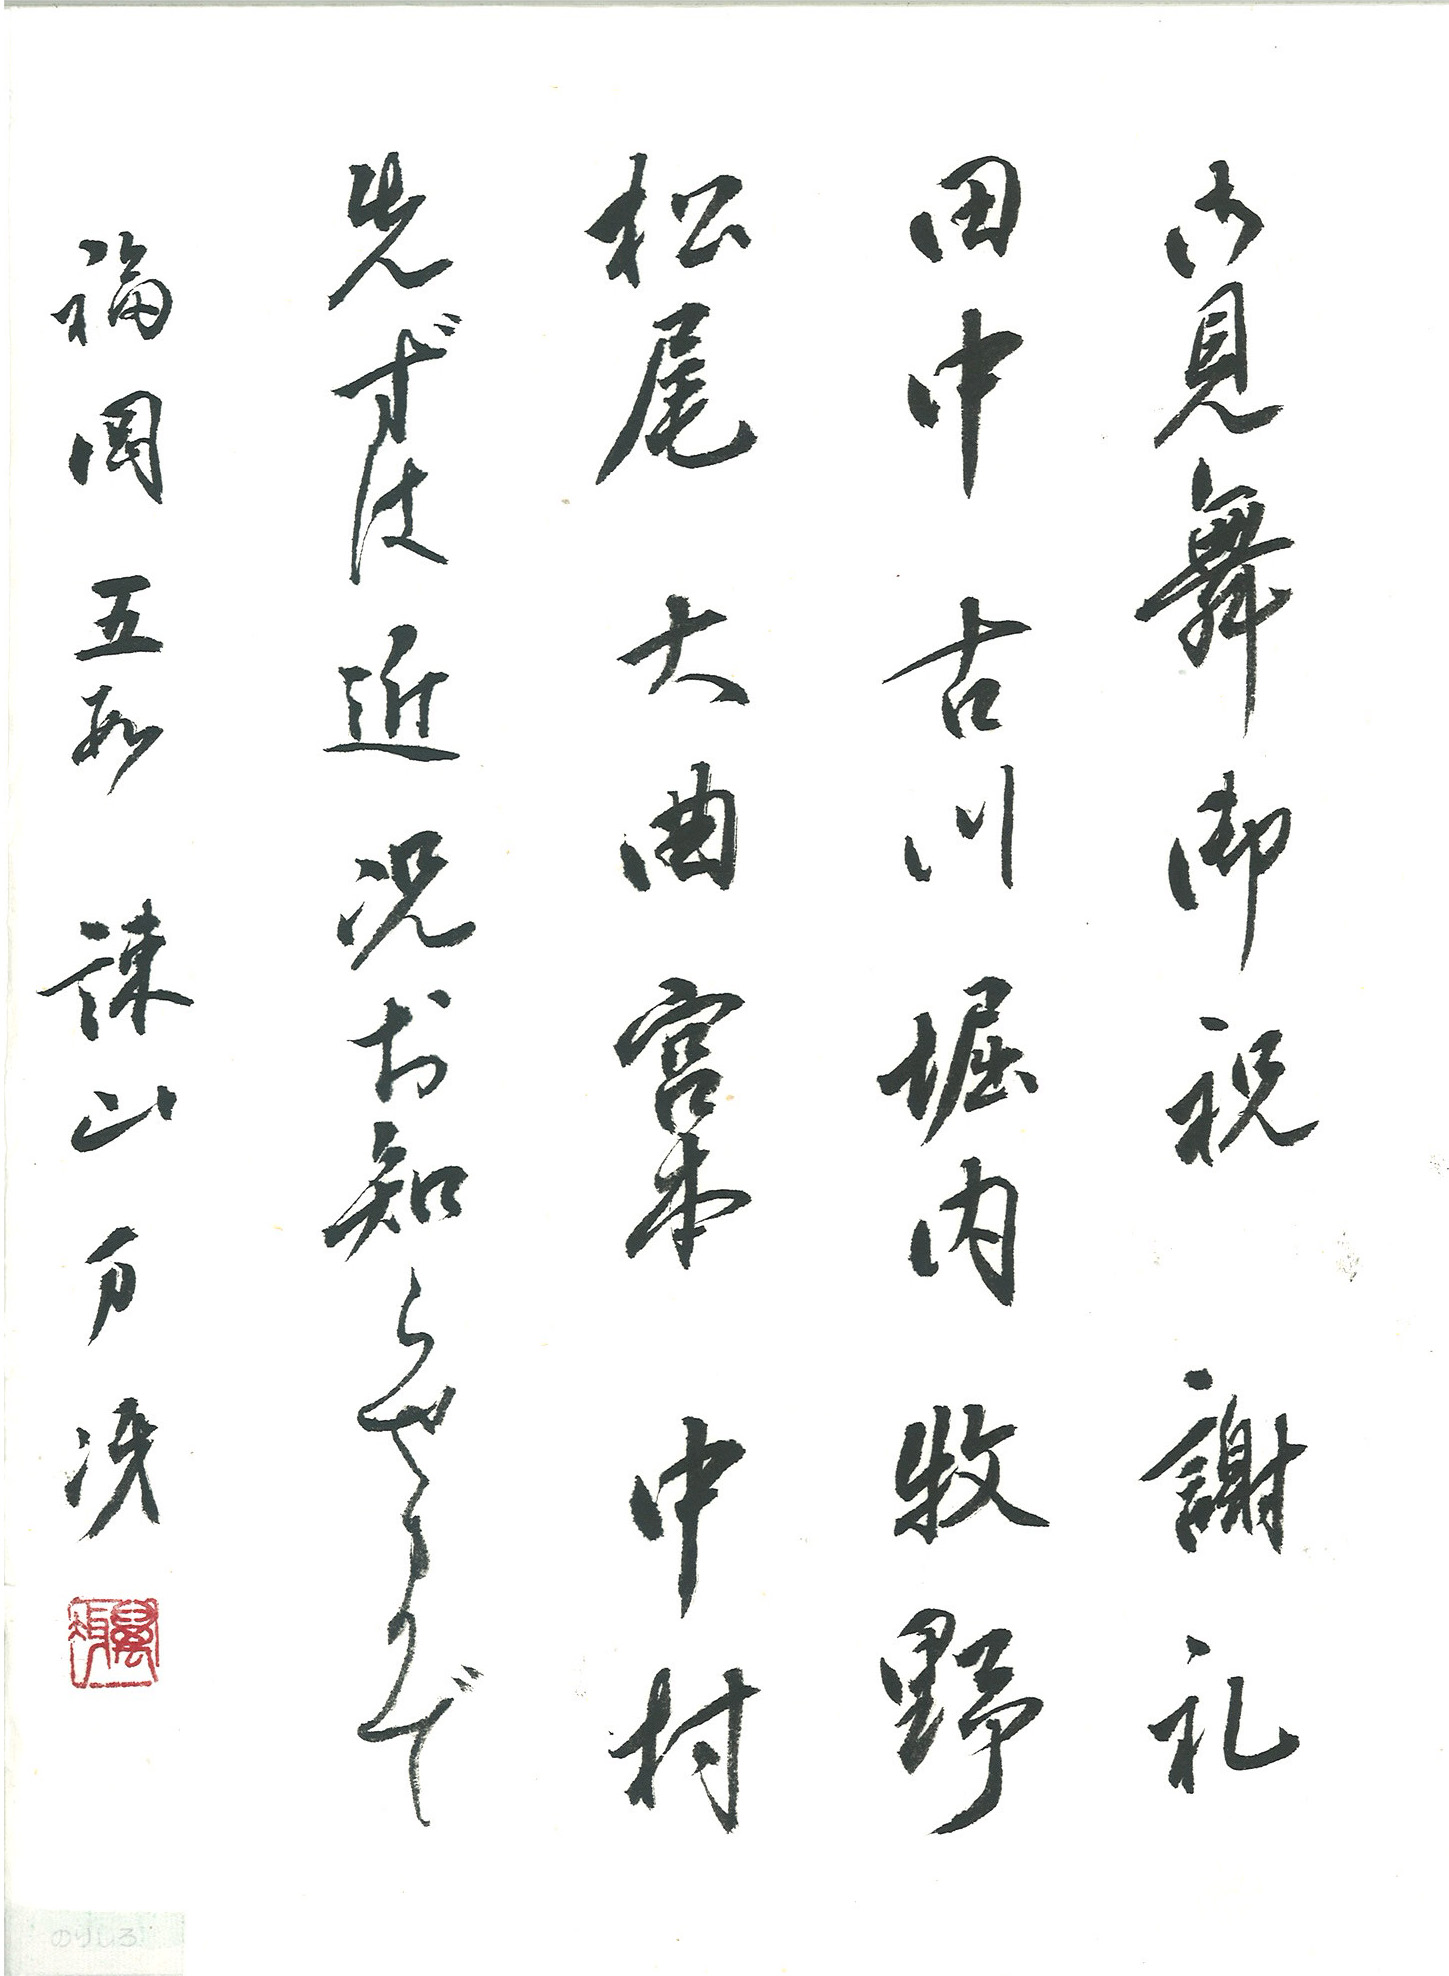 御見舞 御祝 謝礼
田中 古川 堀内 牧野
松尾 大曲 宮本 中村
先ずは近況お知らせまで
福岡 五段 諌山 万
のりしろ